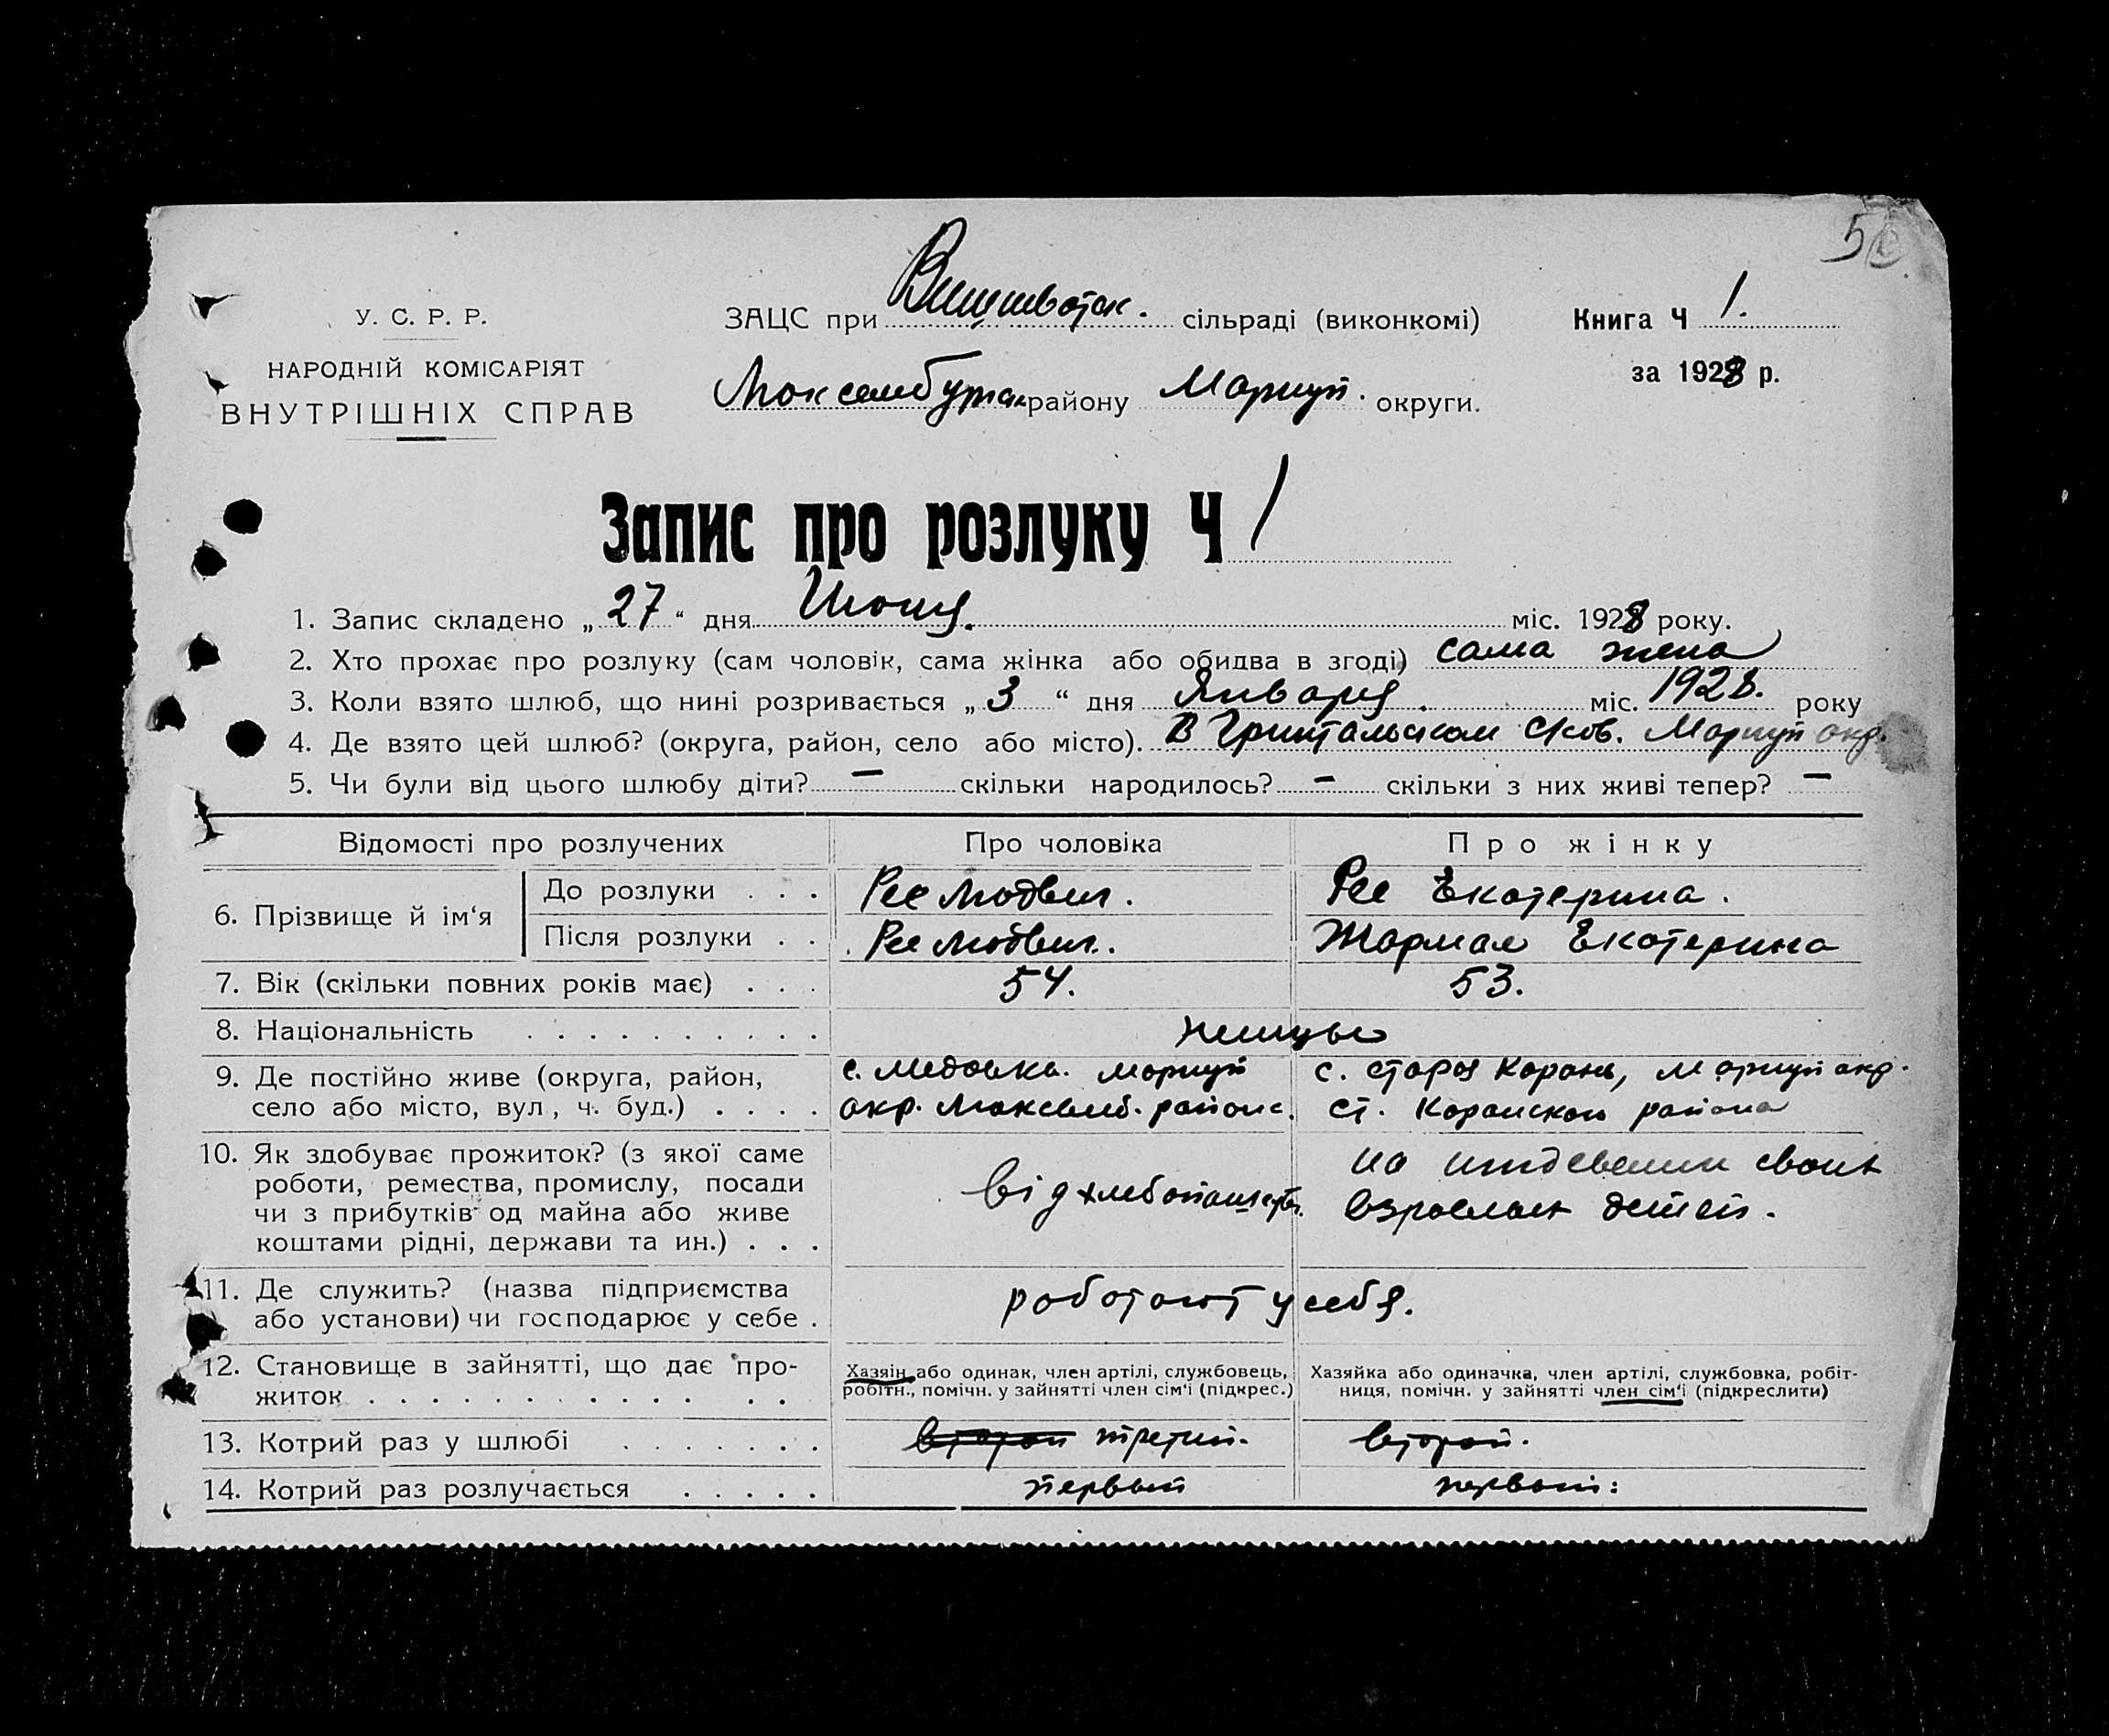 5
У. С. Р. Р.
НАРОДНІЙ КОМІСАРІЯТ
ВНУТРІШНІХ СПРАВ
ЗАЦС при сільраді (виконкомі)
району Мариуп. округи.
Книга Ч 1.
за 1928 р.
Запис про розлуку Ч 1
1. Запис складено „ 27 “ дня міс. 1928 року.
2. Хто прохає про розлуку (сам чоловік, сама жінка або обидва в згоді) сама жена
3. Коли взято шлюб, що нині розривається „ 3 “ дня Января. міс. 1928. року
4. Де взято цей шлюб? (округа, район, село або місто). В Мариуп окр.
5. Чи були від цього шлюбу діти? — скільки народилось? — скільки з них живі тепер? —
Відомості про розлучених Про чоловіка Про жінку
6. Прізвище й ім‘я
До розлуки . . . Рее Людвиг. Рее Екатерина.
Після розлуки . . Рее Людвиг. Екатерина
7. Вік (скільки повних років має) . . . 54. 53.
8. Національність . . . . . . . . . . немцы
9. Де постійно живе (округа, район, с. Мариуп с. старая Карань, Мариуп окр.
село або місто, вул., ч. буд.) . . . . окр. района. ст. Каранского района
10. Як здобуває прожиток? (з якої саме на иждевении своих
роботи, ремества, промислу, посади від хлебопашества. взрослых детей.
чи з прибутків од майна або живе
коштами рідні, держави та ин.) . . .
11. Де служить? (назва підприємства работают у себя.
або установи) чи господарює у себе .
12. Становище в зайнятті, що дає про- Хазяїн або одинак, член артілі, службовець, Хазяйка або одиначка, член артілі, службовка, робіт-
житок . . . . . . . . . . . . . робітн., помічн. у зайнятті член сім‘ї (підкрес.) ниця, помічн. у зайнятті член сім‘ї (підкреслити)
13. Котрий раз у шлюбі . . . . . . . второй третий. второй.
14. Котрий раз розлучається . . . . . первый первый: